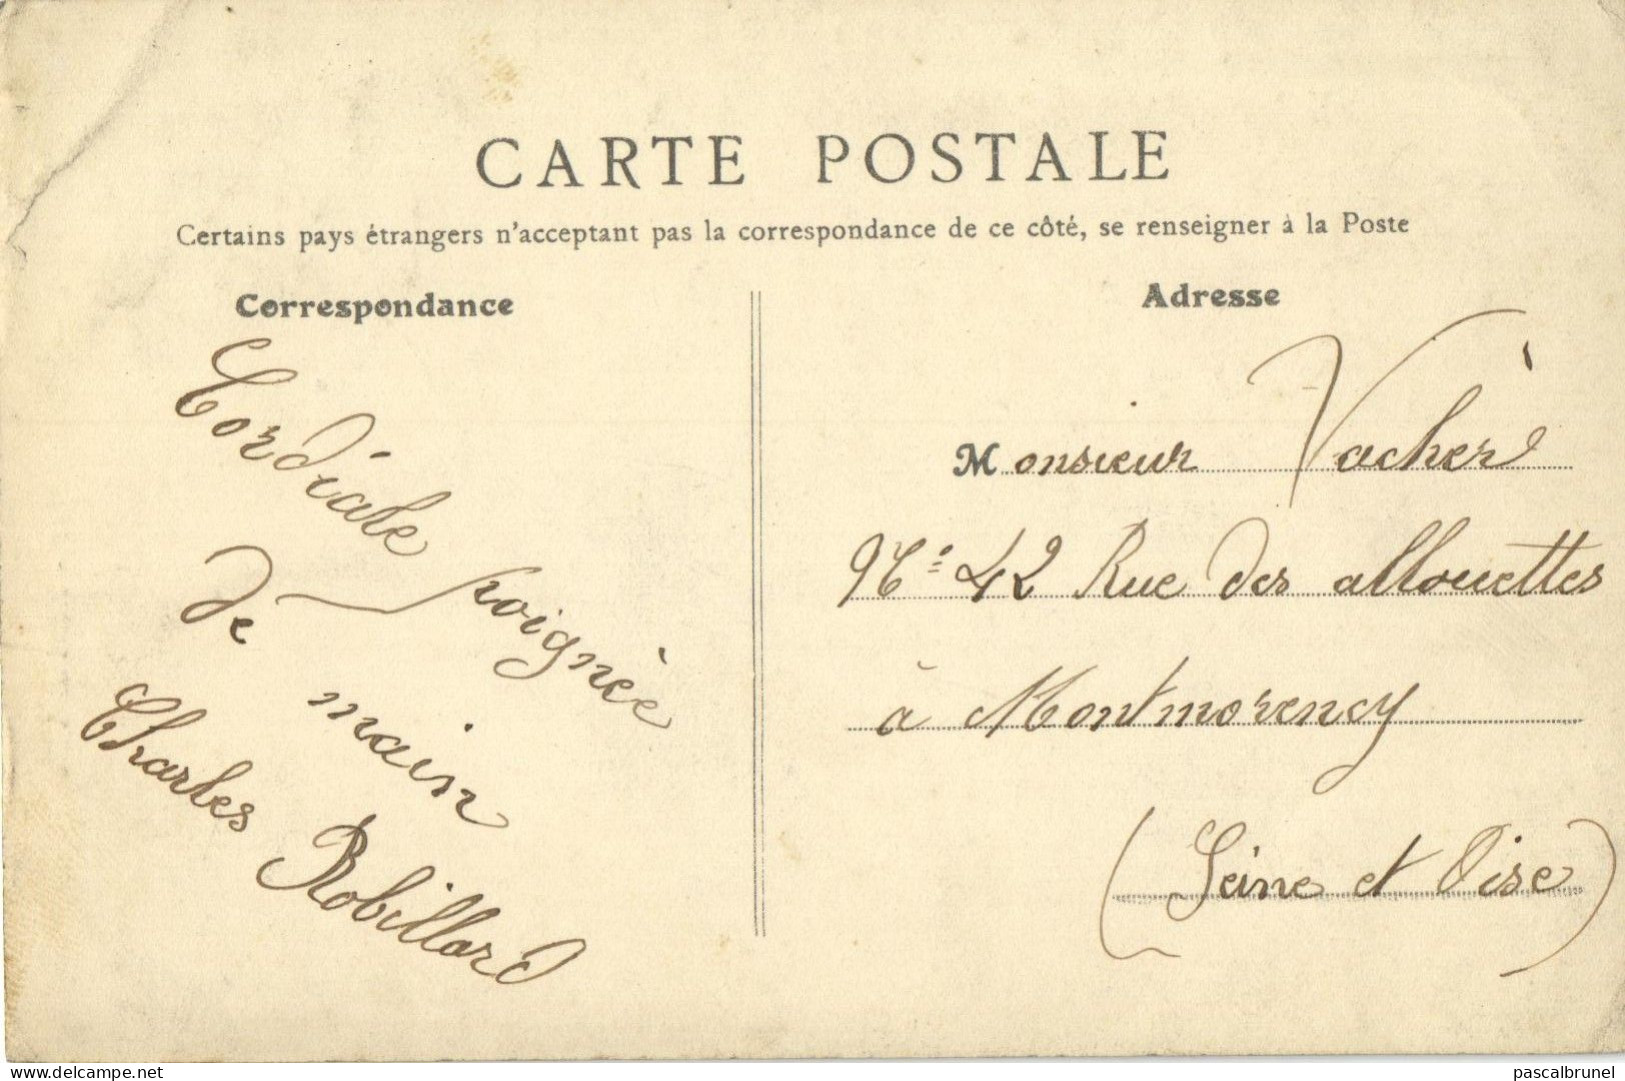 CARTE POSTALE
Certains pays étrangers n'acceptant pas la correspondance de ce côté, se renseigner à la Poste
Correspondance
Cordiale poignèe
de main
Charles Robillard
Adresse
Monsieur Vachér
No 42 Rue des allouettes
à Montmorency
(Seine et Oise)
delcampe.net
pascalbrunel